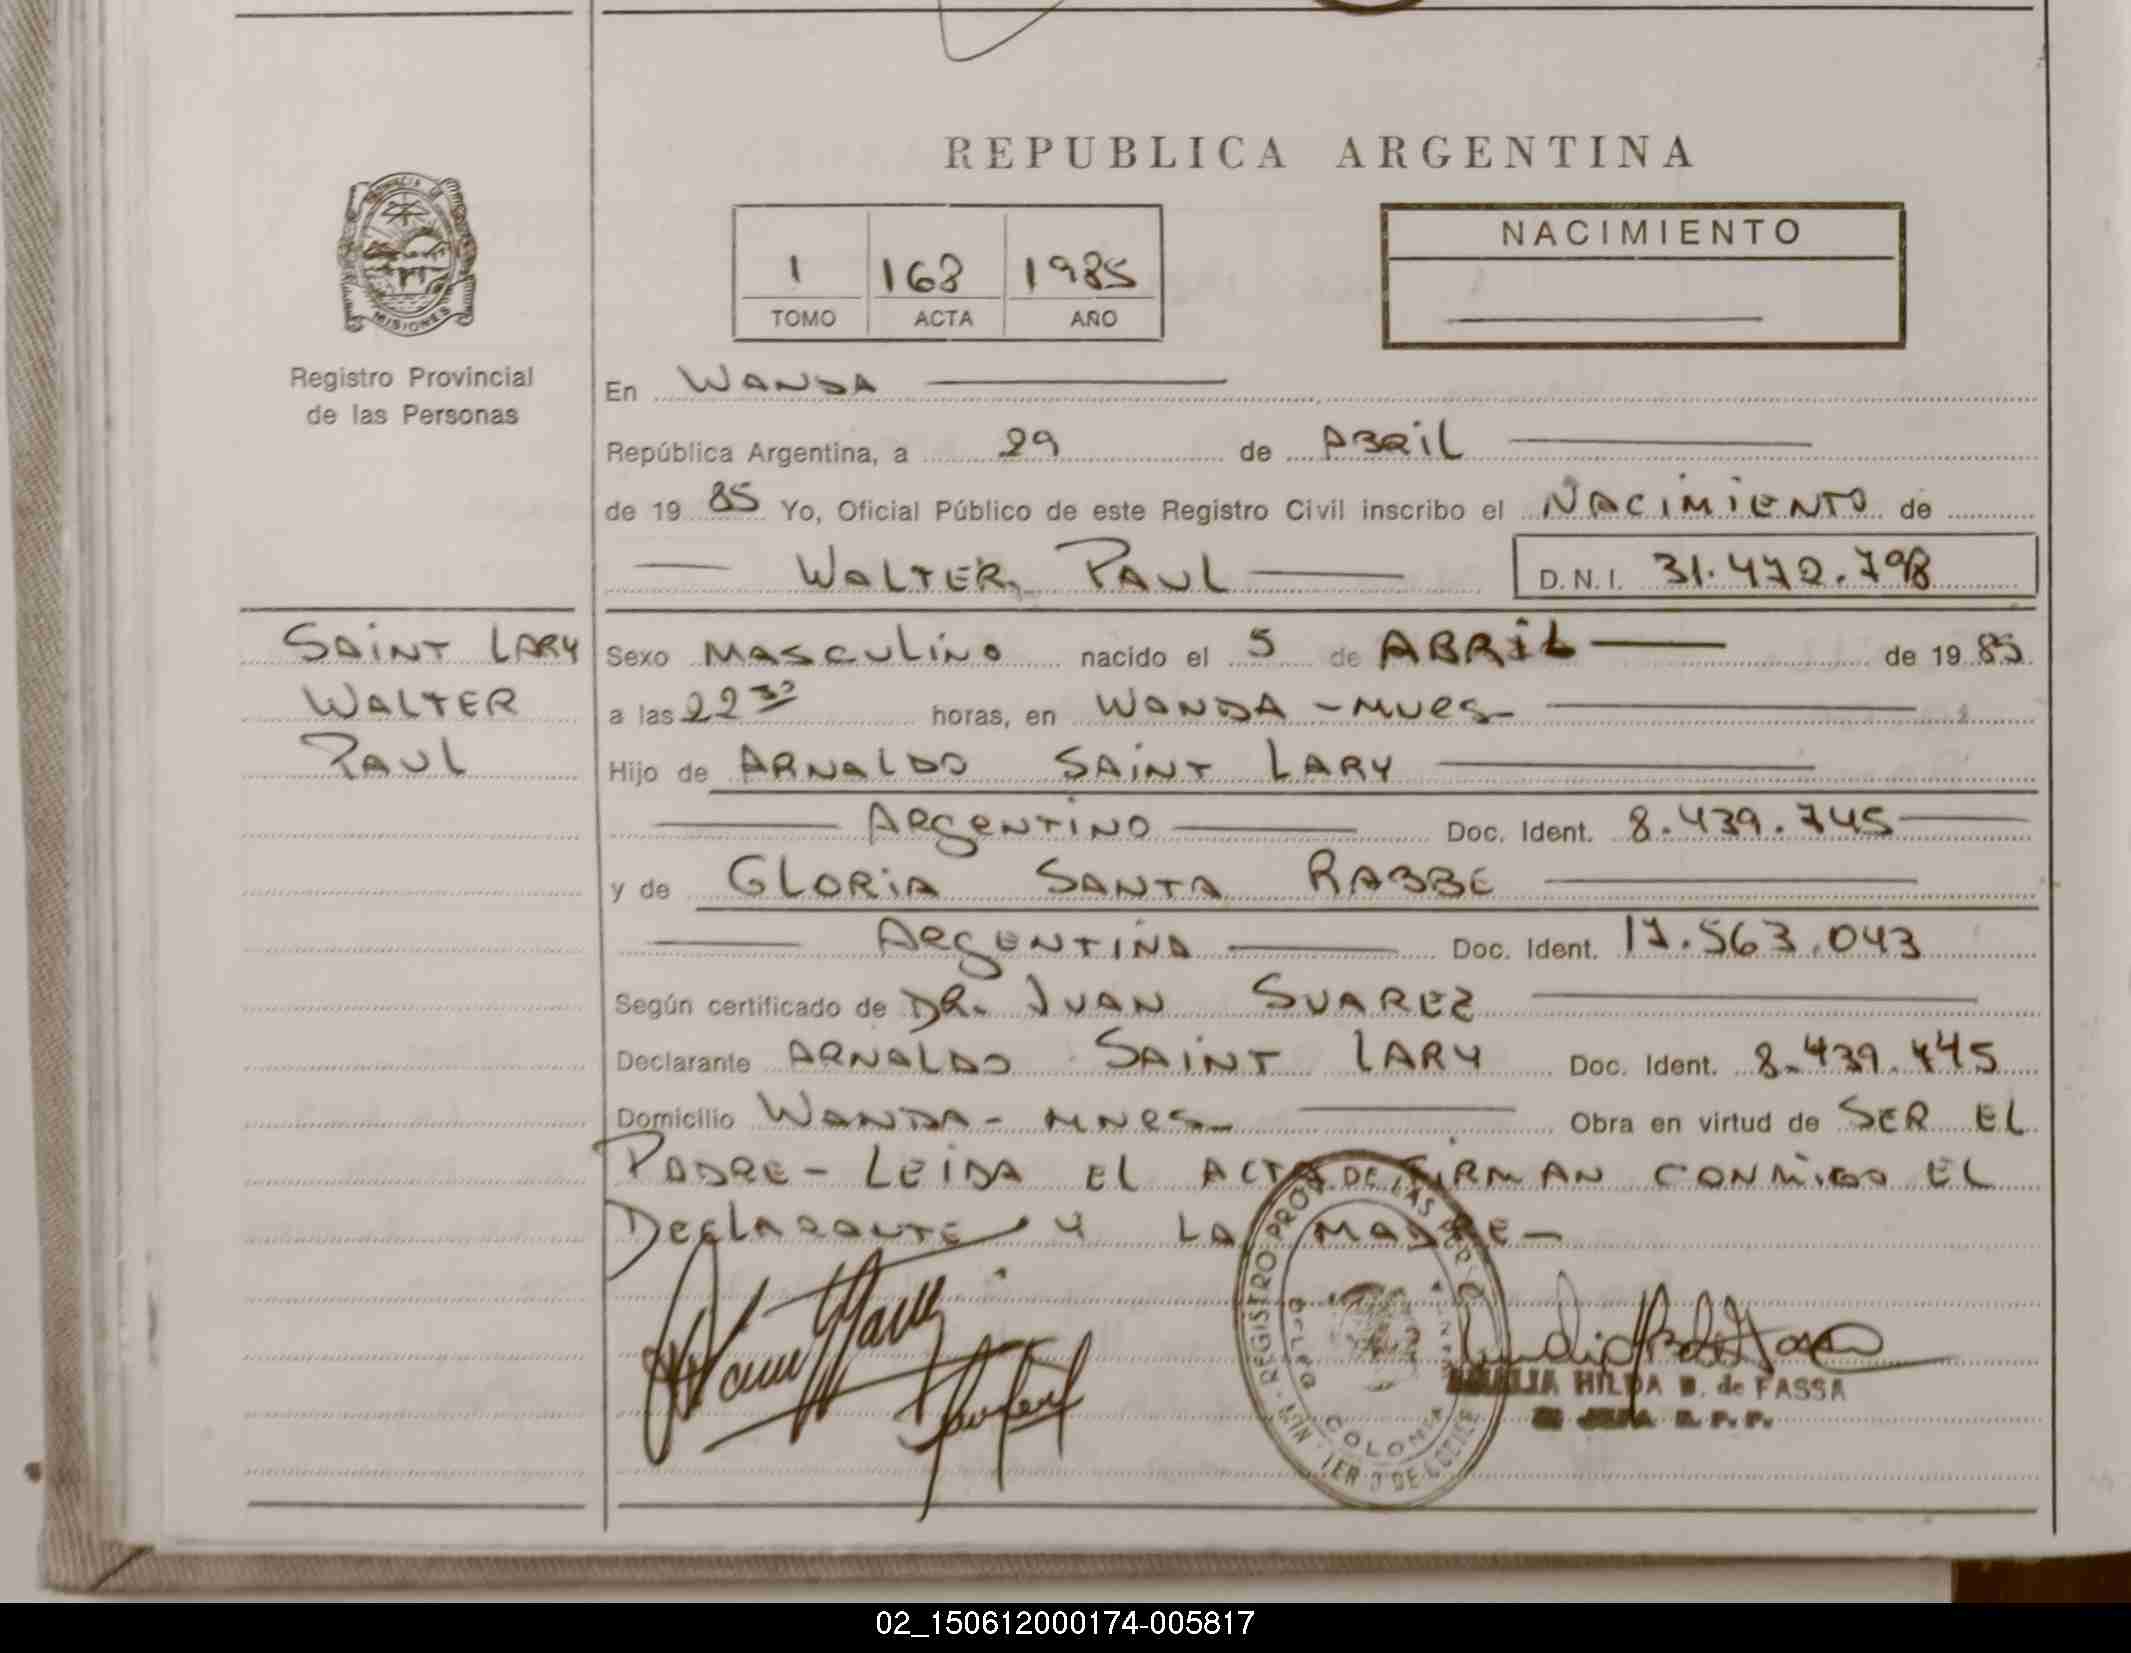 REPUBLICA ARGENTINA
PROVINCIA DE
MISIONES
Registro Provincial
de las Personas
1 168 1985
TOMO ACTA AÑO
NACIMIENTO
En WANDA
República Argentina, a 29 de ABRIL
de 19 85 Yo, Oficial Público de este Registro Civil inscribo el NACIMIENTO de
WALTER PAUL D.N.I. 31.472.798
SAINT LARY
WALTER
PAUL
Sexo MASCULINO nacido el 5 de ABRIL de 19 85
a las 22 30 horas, en WANDA -
Hijo de ARNALDO SAINT LARY
ARGENTINO Doc. Ident. 8.439.745
y de GLORIA SANTA RABBE
ARGENTINA Doc. Ident. 17.563.043
Según certificado de DR. JUAN SUAREZ
Declarante ARNALDO SAINT LARY Doc. Ident. 8.439.745
Domicilio WANDA - MNES Obra en virtud de SER EL
PADRE - LEIDA EL ACTA FIRMAN CONMIGO EL
DECLARANTE Y LA MADRE -
REGISTRO PROV. DE LAS PER
COLONIA
AMALIA HILDA B. de FASSA
JEFA R. P. P.
02_150612000174-005817